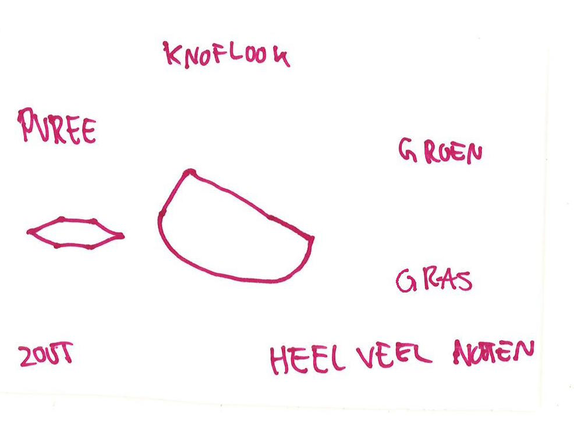 KNOFLOOK
PUREE
GROEN
GRAS
ZOUT
HEEL VEEL NOTEN